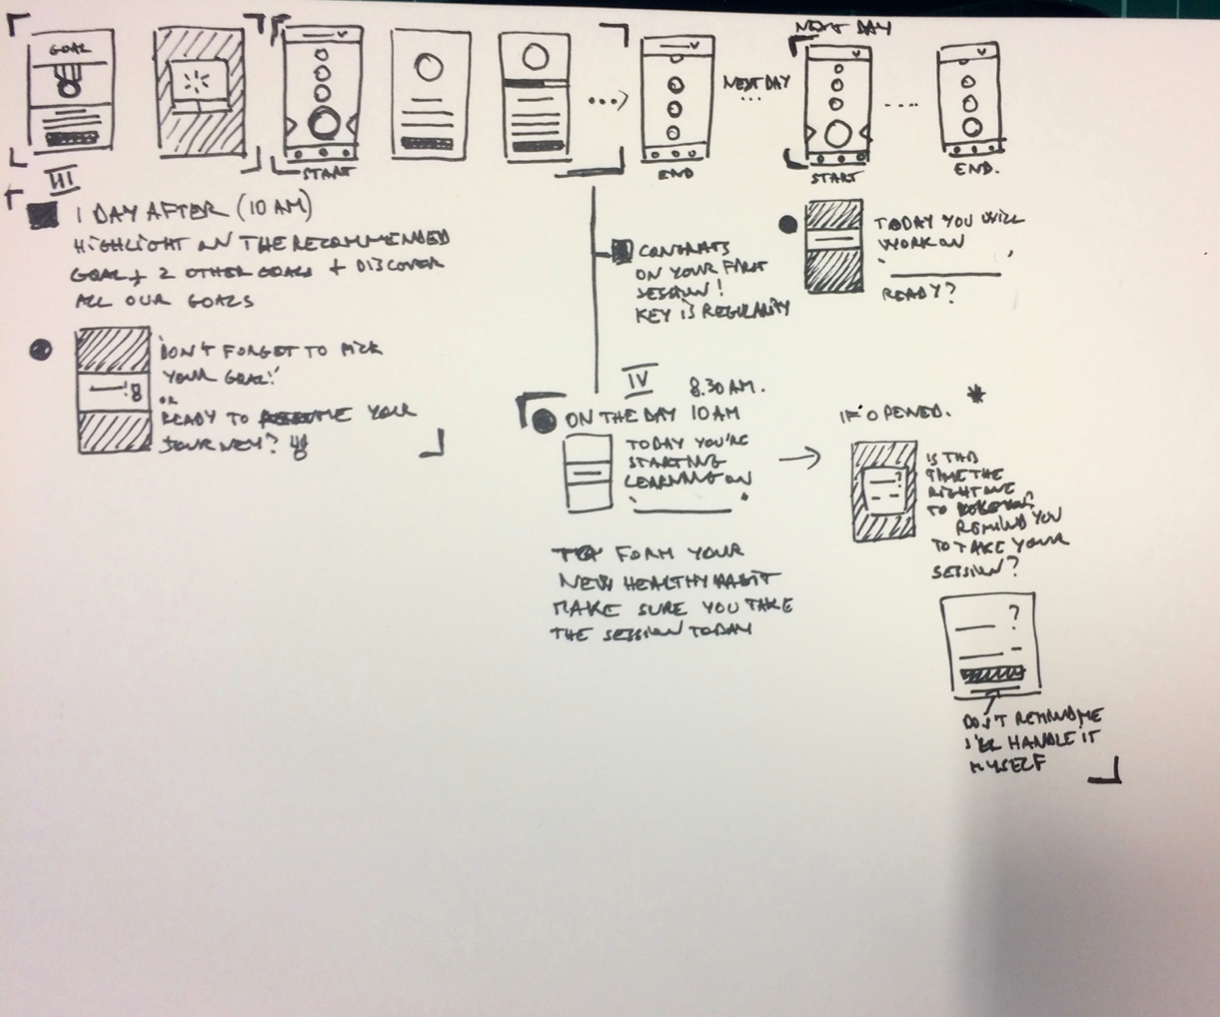 GOAL
START
END
NEXT DAY
...
NEXT DAY
START
END.
III
1 DAY AFTER (10 AM)
HIGHLIGHT ON THE RECOMMENDED
GOAL + 2 OTHER GOALS + DISCOVER
ALL OUR GOALS
'DON'T FORGET TO PICK
YOUR GOAL!'
OR
READY TO YOUR
JOURNEY?
CONGRATS
ON YOUR FIRST
SESSION!
KEY IS REGULARITY
TODAY YOU WILL
WORK ON
' '
READY?
IV 8.30 AM.
ON THE DAY 10 AM
TODAY YOU'RE
STARTING
LEARNING ON
TO FORM YOUR
NEW HEALTHY HABIT
MAKE SURE YOU TAKE
THE SESSION TODAY
IF OPENED. *
?
IS THIS
TIME THE
RIGHT ONE
TO
REMIND YOU
TO TAKE YOUR
SESSION?
?
DON'T REMIND ME
I'LL HANDLE IT
MYSELF